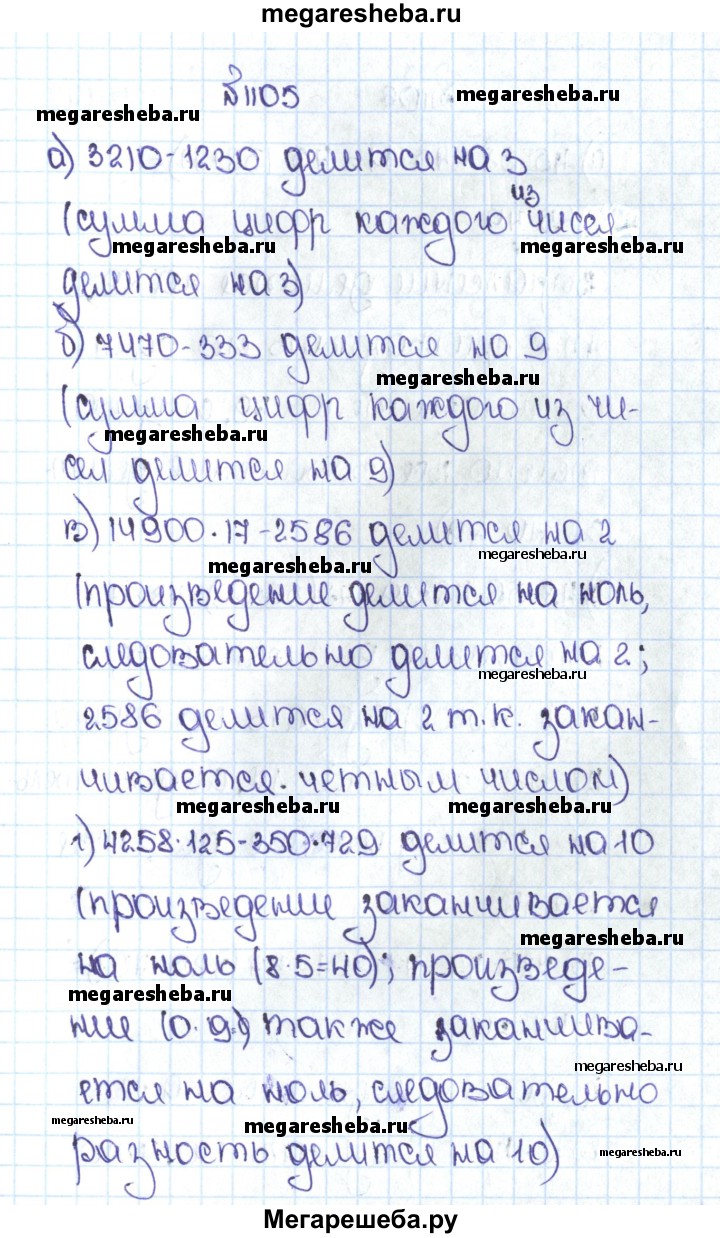 megaresheba.ru
№1105
megaresheba.ru
megaresheba.ru
а) 3210-1230 делится на 3
из
(сумма цифр каждого чисел
megaresheba.ru
megaresheba.ru
делится на 3)
б) 7470-333 делится на 9
megaresheba.ru
(сумма цифр каждого из чи-
megaresheba.ru
сел делится на 9)
в) 14900·17-2586 делится на 2
megaresheba.ru
megaresheba.ru
(произведение делится на ноль,
следовательно делится на 2;
megaresheba.ru
2586 делится на 2 т.к. закан-
чивается четным числом)
megaresheba.ru
megaresheba.ru
г) 4258·125-350·729 делится на 10
(произведение заканчивается
megaresheba.ru
на ноль (8·5=40); произведе-
megaresheba.ru
ние (0·9) также заканчива-
megaresheba.ru
ется на ноль, следовательно
megaresheba.ru
megaresheba.ru
разность делится на 10)
megaresheba.ru
Мегарешеба.ру